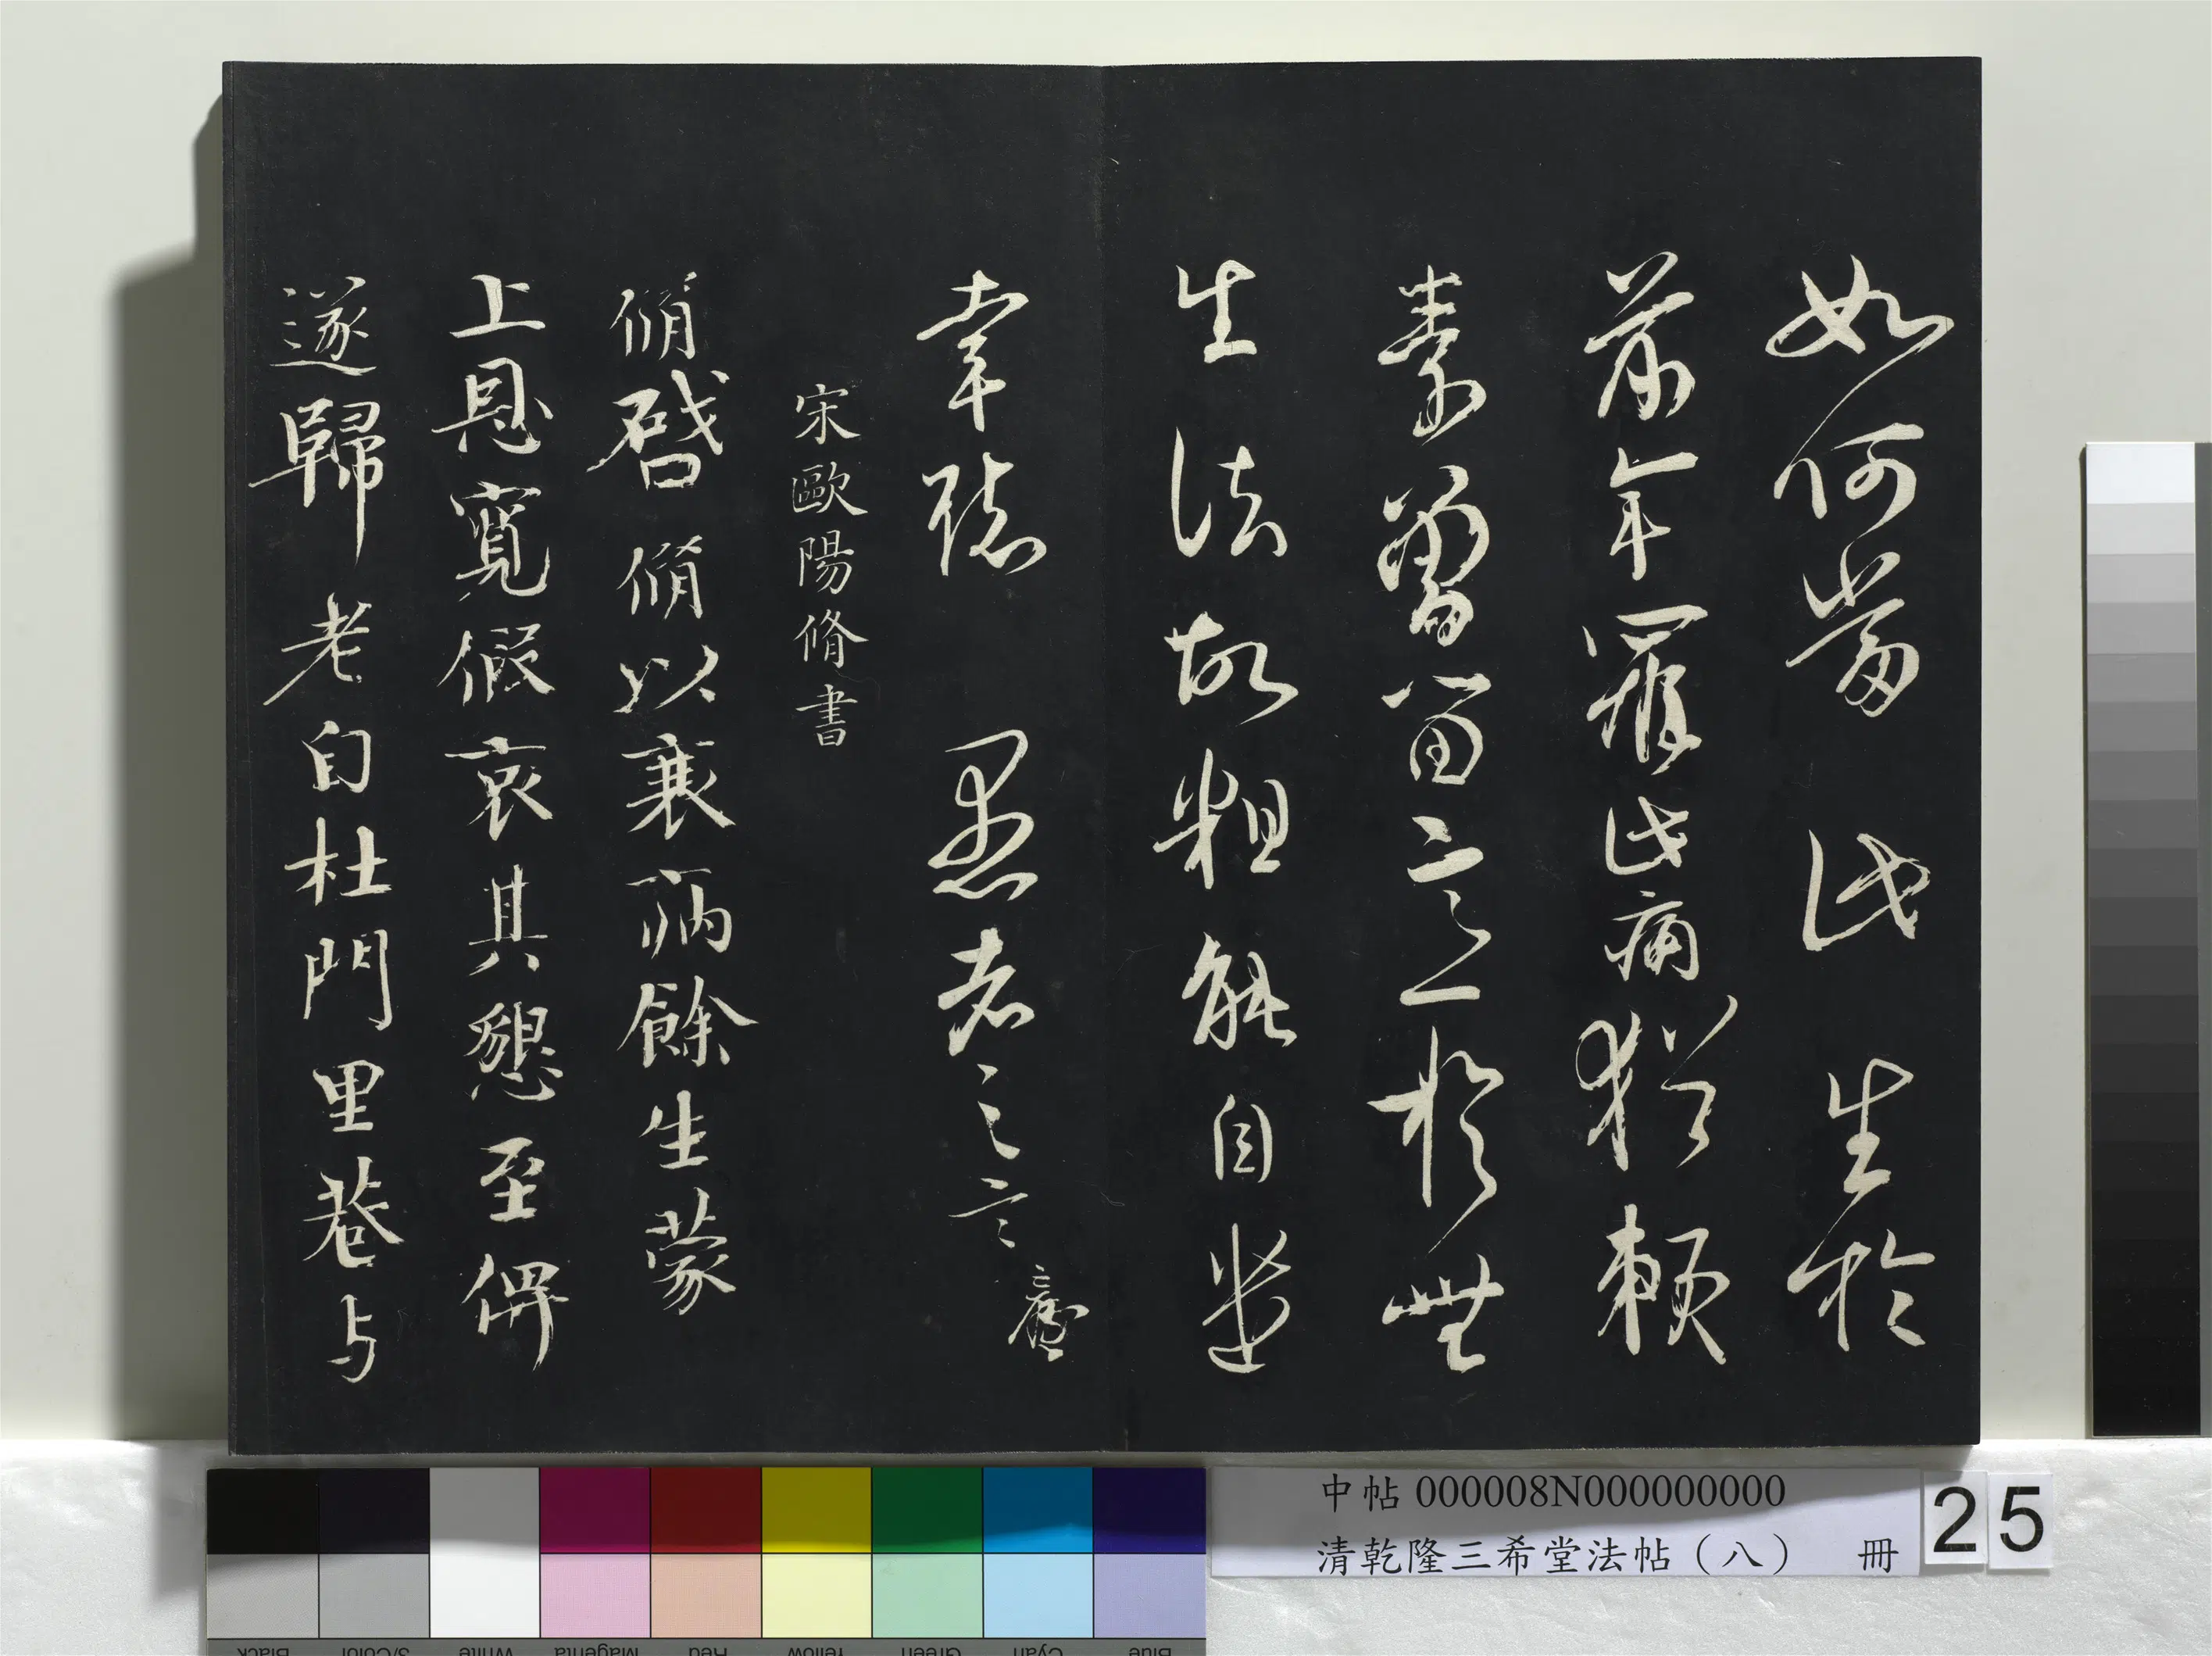 如何當此生於
前年罹此病猶賴
素曾留意於無
生法故粗能自遣
幸聽愚者之言
宋歐陽脩書
脩啓脩以衰病餘生蒙
上恩寬假哀其懇至俾
遂歸老自杜門里巷与
中帖 000008N000000000
清乾隆三希堂法帖（八） 冊
25
Black
3/Color
White
Magenta
Red
Yellow
Green
Cyan
Blue